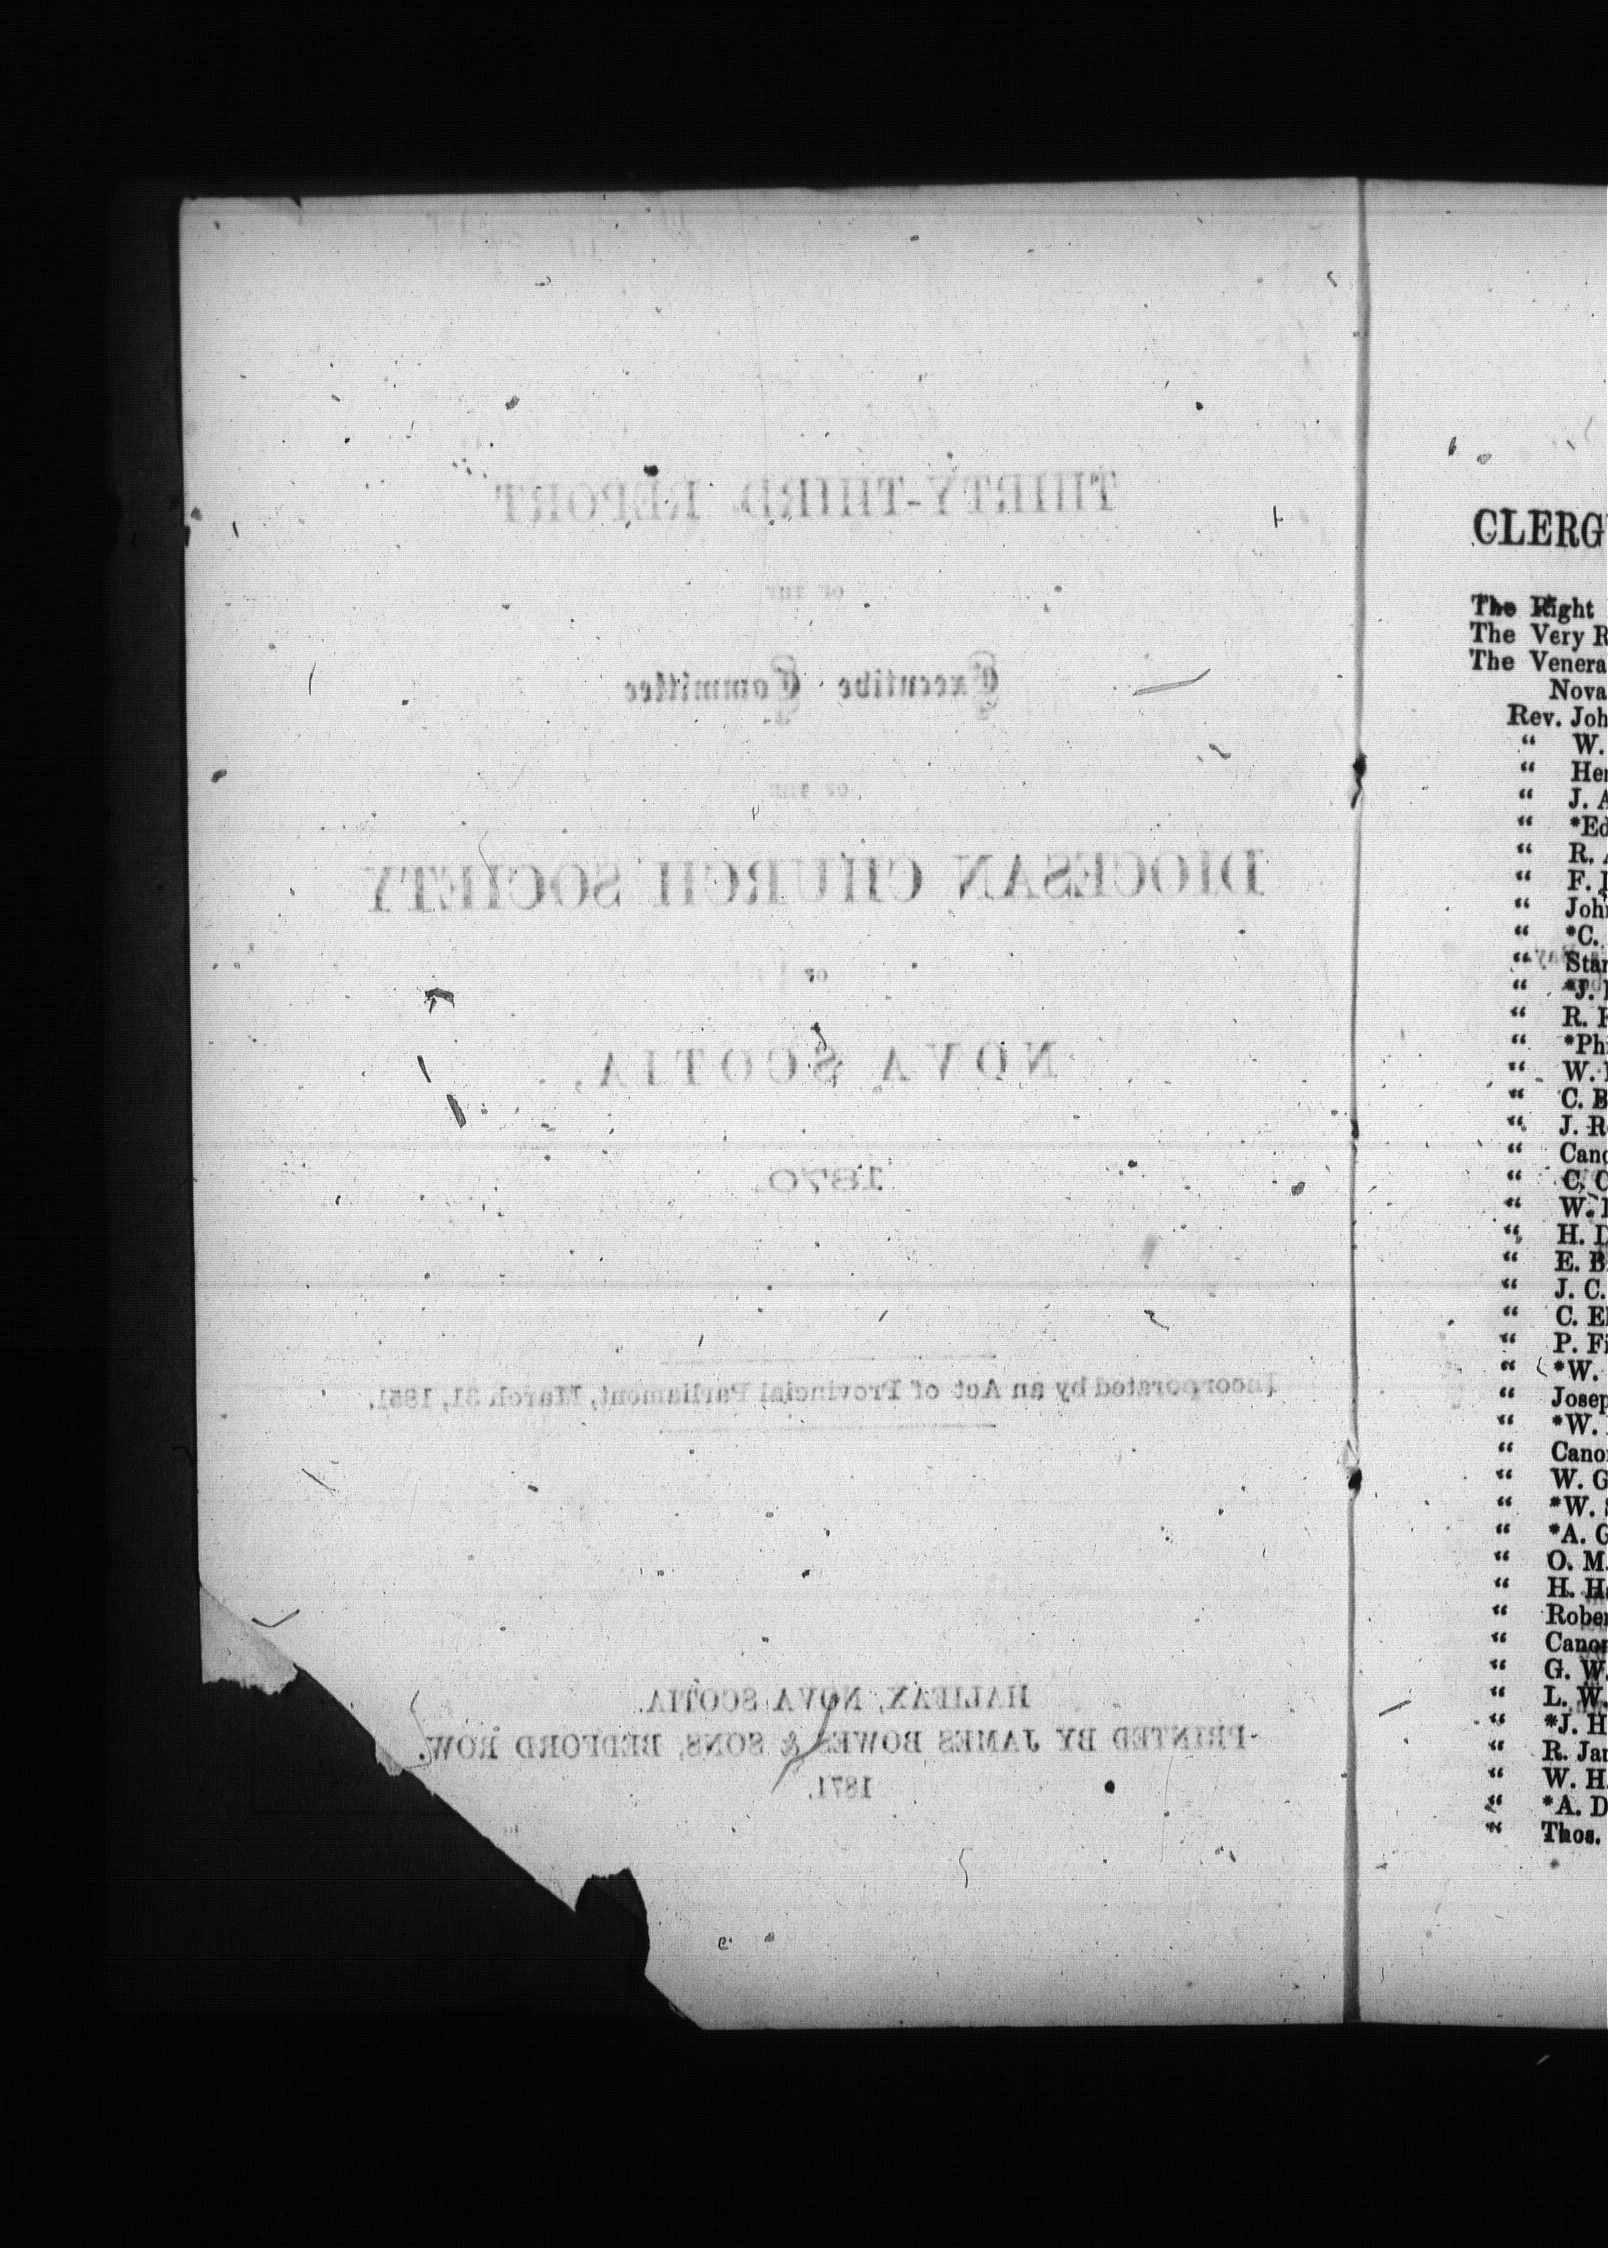 THIRTY-THIRD REPORT
OF THE
Executive Committee
OF THE
DIOCESAN CHURCH SOCIETY
OF
NOVA SCOTIA,
1870.
Incorporated by an Act of Provincial Parliament, March 31, 1851.
HALIFAX, NOVA SCOTIA.
PRINTED BY JAMES BOWES & SONS, BEDFORD ROW.
1871.
CLERG
The Right
The Very R
The Venera
Nova
Rev. Joh
" W.
" Her
" J. A
" *Ed
" R. A
" F.
" John
" *C.
" Stan
" *J.
" R. F
" *Phi
" W.
" C. B
" J. R
" Cano
" C. C
" W.
" H. D
" E. B
" J. C.
" C. El
" P. Fi
" *W.
" Josep
" *W.
" Cano
" W. G
" *W. S
" *A. G
" O. M.
" H. Ha
" Rober
" Canon
" G. W.
" L. W.
" *J. H
" R. Jam
" W. H.
" *A. D
" Thos.